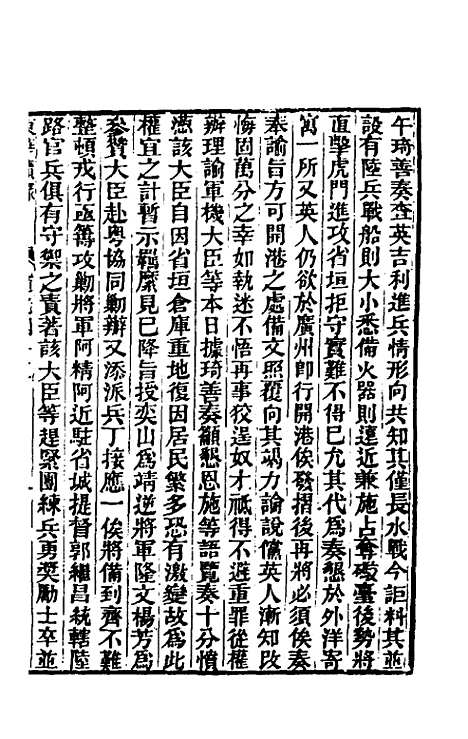 午琦善奏查英吉利進兵情形向共知其僅長水戰今詎料其並
設有陸兵戰船則大小悉備火器則遠近兼施占奪礮臺後勢將
直擊虎門進攻省垣拒守實難不得已允其代為奏懇於外洋寄
寓一所又英人仍欲於廣州即行開港俟發摺後再將必須俟奏
奉諭旨方可開港之處備文照覆向其竭力諭說儻英人漸知改
悔固萬分之幸如執迷不悟再事狡逞奴才祇得不避重罪從權
辦理諭軍機大臣等本日據琦善奏籲懇恩施等語覽奏十分憤
懣該大臣自因省垣倉庫重地復因居民繁多恐有激變故為此
權宜之計暫示羈縻見已降旨授奕山為靖逆將軍隆文楊芳為
參贊大臣赴粵協同勦辦又添派兵丁接應一俟將備到齊不難
整頓戎行亟籌攻勦將軍阿精阿近駐省城提督郭繼昌統轄陸
路官兵俱有守禦之責著該大臣等趕緊團練兵勇獎勵士卒並